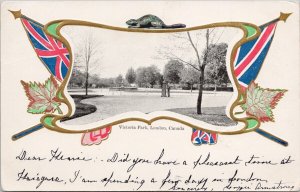 Victoria Park, London, Canada
Dear Flossie:- Did you have a pleasant time at
I am spending a few days in London